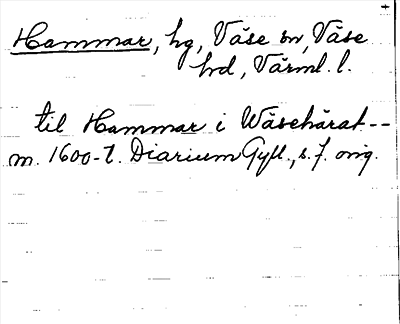 Hammar, hg, Väse sn, Väse
hd, Värml. l.
til Hammar i Wäsehärat --
m. 1600-t. Diarium Gyll., s. 7. orig.